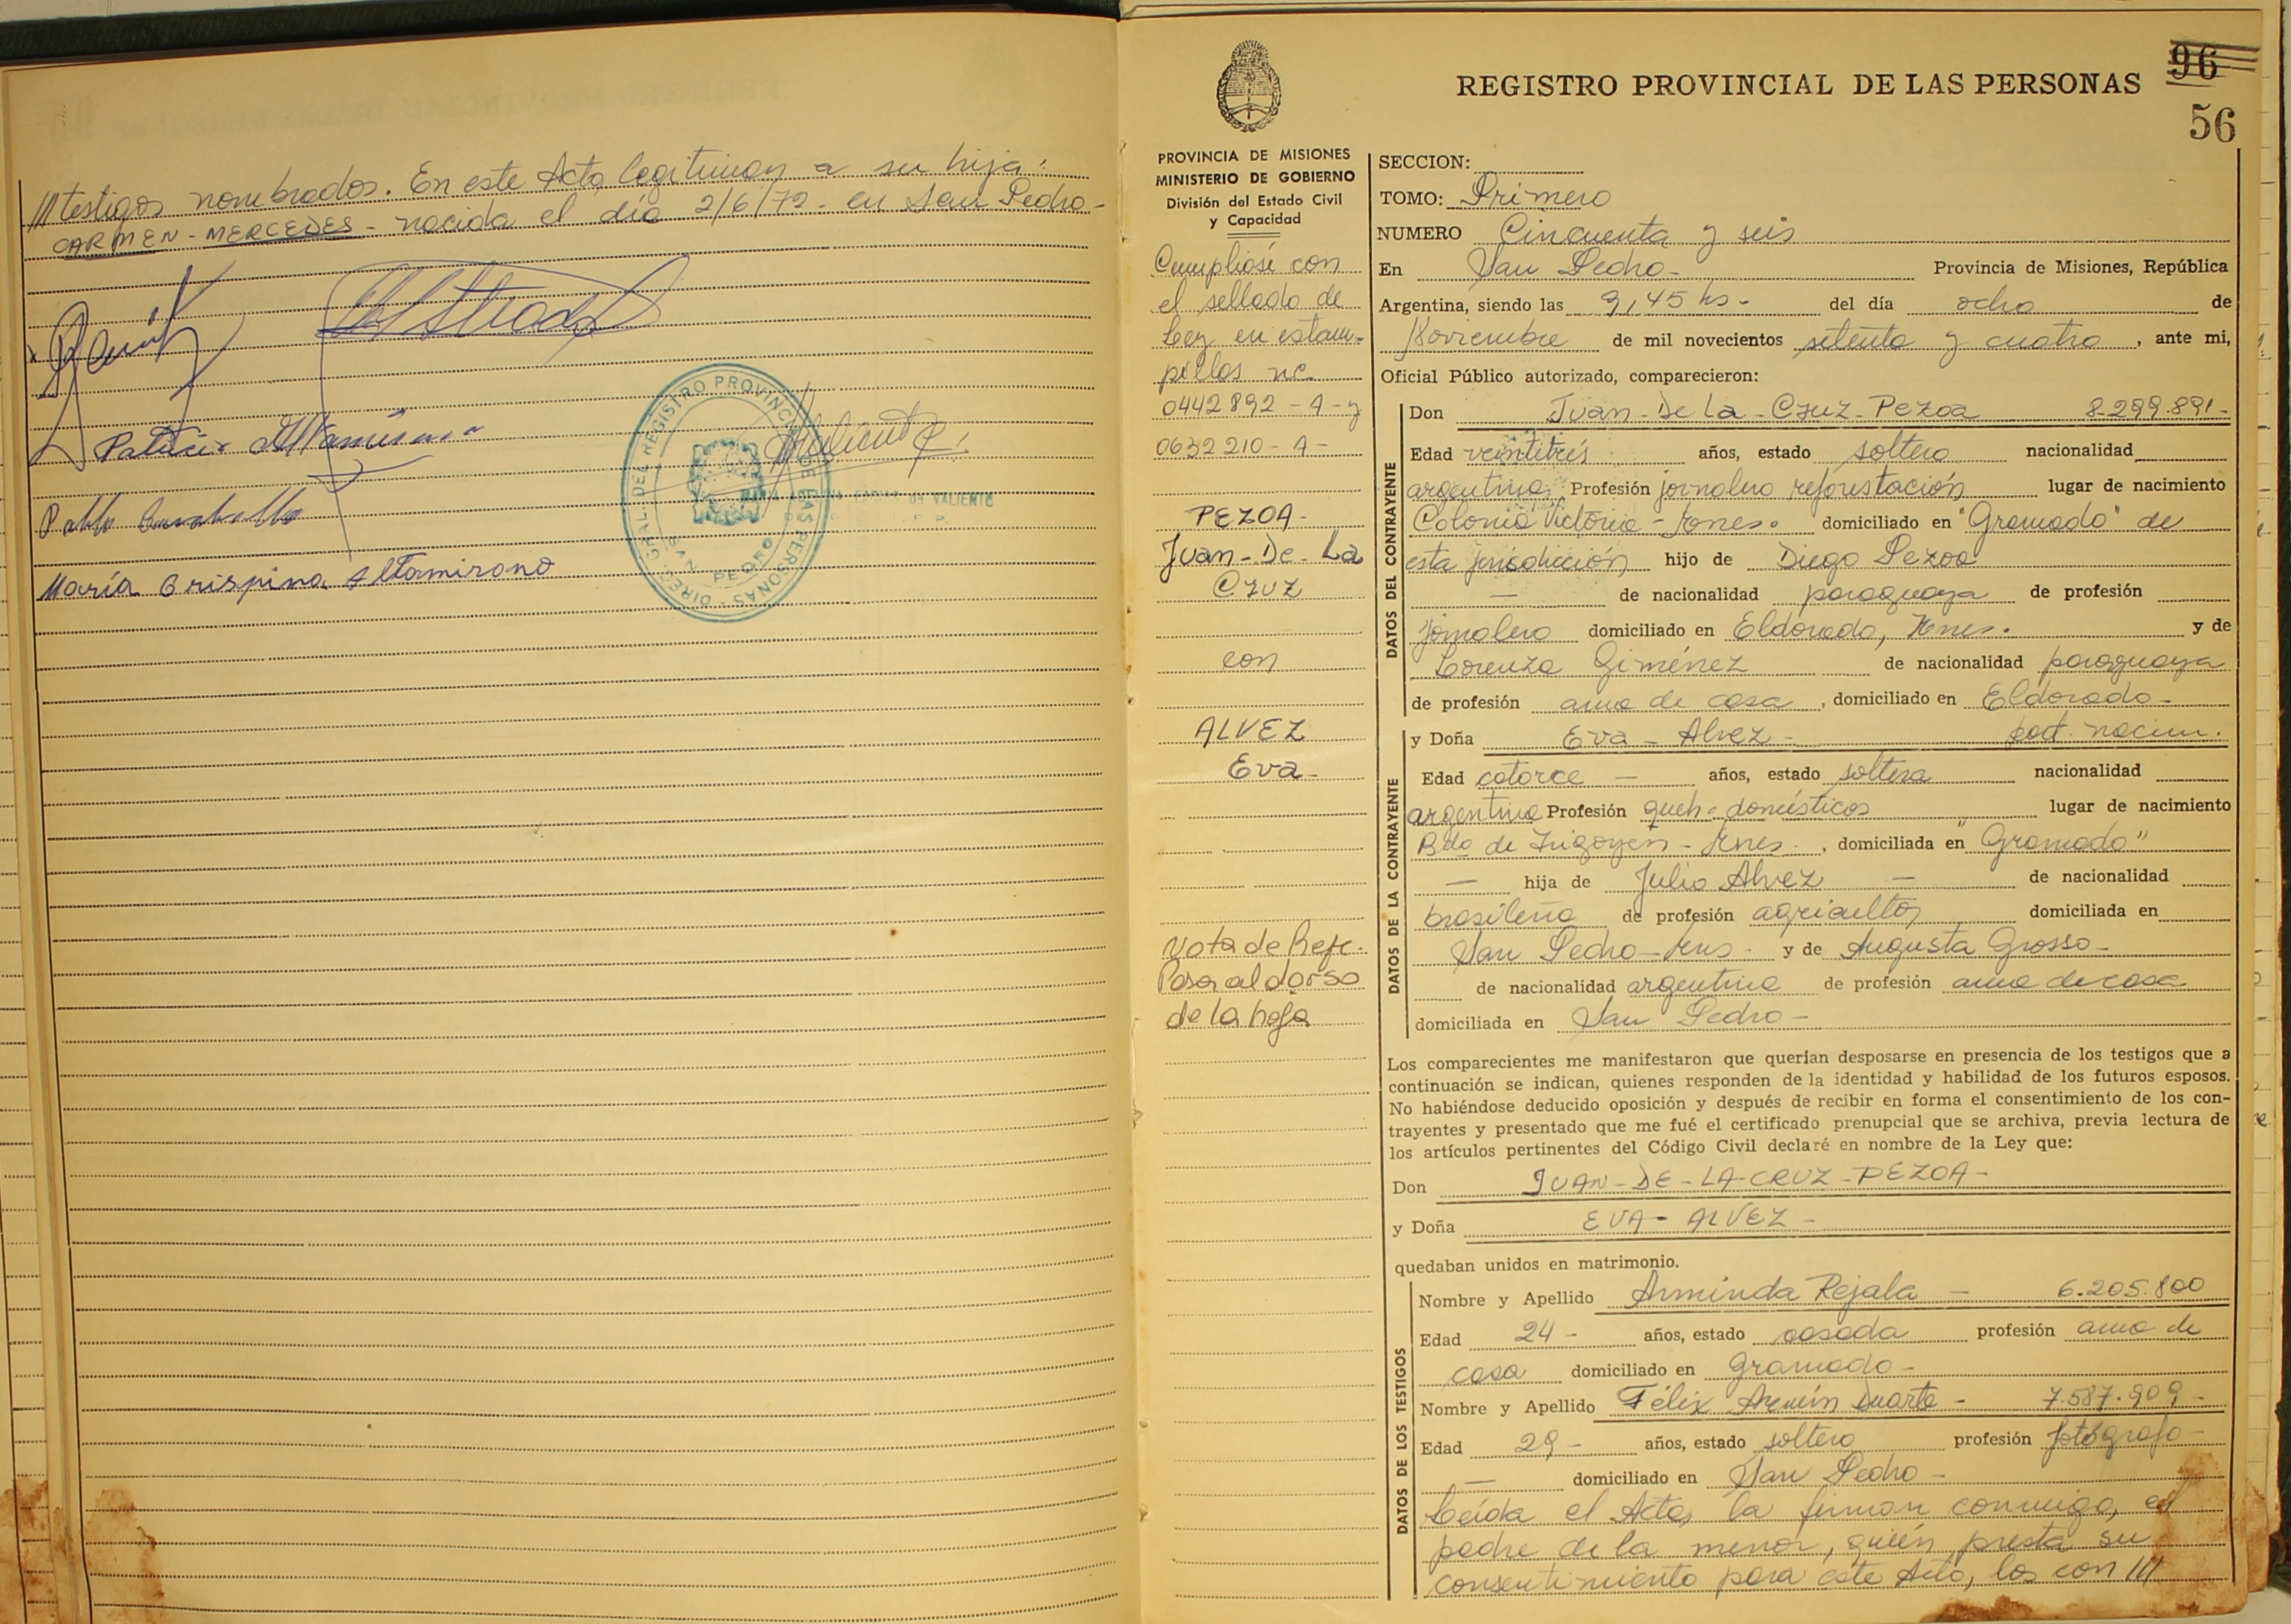 /// testigos nombrados. En este Acto legitiman a su hija:
CARMEN - MERCEDES - nacida el día 2/6/72 - en San Pedro -
Patricio Altamirano
Pablo
María Crispina Altamirano
DIREC. GRAL. DEL REGISTRO PROVINCIAL DE LAS PERSONAS
SAN PEDRO
de VALIENTE
96
REGISTRO PROVINCIAL DE LAS PERSONAS
56
PROVINCIA DE MISIONES
MINISTERIO DE GOBIERNO
División del Estado Civil
y Capacidad
Cumpliósé con
el sellado de
Ley en estam-
pillas nc.
0442892 - A - y
0632210 - A -
PEZOA -
Juan - De - La
Cruz
con
ALVEZ
Eva -
Nota de Refe.
Pasa al dorso
de la hoja
SECCION:
TOMO: Primero
NUMERO Cincuenta y seis
En San Pedro - Provincia de Misiones, República
Argentina, siendo las 9,45 hs - del día ocho de
Noviembre de mil novecientos setenta y cuatro , ante mi,
Oficial Público autorizado, comparecieron:
DATOS DEL CONTRAYENTE
Don Juan - De La - Cruz - Pezoa 8.299.891 -
Edad veintitrés años, estado soltero nacionalidad
argentina Profesión jornalero reforestación lugar de nacimiento
Colonia Victoria - Mnes. domiciliado en "Gramado" de
esta jurisdicción hijo de Diego Pezoa
— de nacionalidad paraguaya de profesión
jornalero domiciliado en Eldorado, Mnes. y de
Lorenza Giménez de nacionalidad paraguaya
de profesión ama de casa , domiciliado en Eldorado -
DATOS DE LA CONTRAYENTE
y Doña Eva - Alvez - part. nacim.
Edad catorce — años, estado soltera nacionalidad
argentina Profesión queh. domésticos lugar de nacimiento
Bdo de Irigoyen - Mnes. , domiciliada en "Gramado"
— hija de Julio Alvez — de nacionalidad
brasileña de profesión agricultor domiciliada en
San Pedro - Mns - y de Augusta Grosso -
de nacionalidad argentina de profesión ama de casa
domiciliada en San Pedro -
Los comparecientes me manifestaron que querían desposarse en presencia de los testigos que a
continuación se indican, quienes responden de la identidad y habilidad de los futuros esposos.
No habiéndose deducido oposición y después de recibir en forma el consentimiento de los con-
trayentes y presentado que me fué el certificado prenupcial que se archiva, previa lectura de
los artículos pertinentes del Código Civil declaré en nombre de la Ley que:
Don JUAN - DE - LA - CRUZ - PEZOA -
y Doña EVA - ALVEZ -
quedaban unidos en matrimonio.
DATOS DE LOS TESTIGOS
Nombre y Apellido Arminda Rejala — 6.205.800
Edad 24 - años, estado casada profesión ama de
casa domiciliado en Gramado -
Nombre y Apellido Félix Duarte - 7.587.909 -
Edad 29 - años, estado soltero profesión fotógrafo -
— domiciliado en San Pedro -
Leída el Acta, la firman conmigo, el
padre de la menor, quién presta su
consentimiento para éste Acto, los con ///